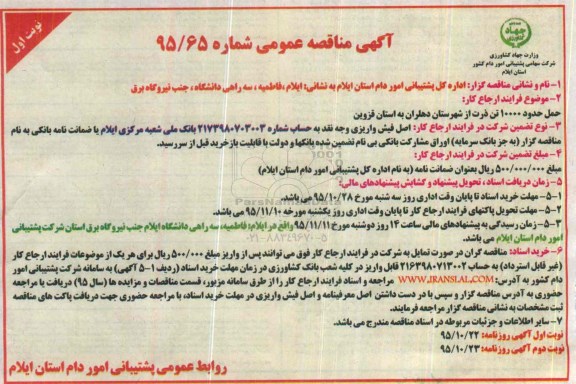 نوبت اول
آگهی مناقصه عمومی شماره ۹۵/۶۵
وزارت جهاد کشاورزی
شرکت سهامی پشتیبانی امور دام کشور
استان ایلام
۱- نام و نشانی مناقصه گزار: اداره کل پشتیبانی امور دام استان ایلام به نشانی: ایلام ،فاطمیه ، سه راهی دانشگاه ، جنب نیروگاه برق
۲-موضوع فرایند ارجاع کار:
حمل حدود ۱۰۰۰۰ تن ذرت از شهرستان دهلران به استان قزوین
۳- نوع تضمین شرکت در فرایند ارجاع کار: اصل فیش واریزی وجه نقد به حساب شماره ۲۱۷۳۹۸۰۷۰۳۰۰۳ بانک ملی شعبه مرکزی ایلام یا ضمانت نامه بانکی به نام
مناقصه گزار (به جز بانک سرمایه) اوراق مشارکت بانکی بی نام تضمین شده بانکها و دولت با قابلیت بازخرید قبل از سررسید.
۴- مبلغ تضمین شرکت در فرایند ارجاع کار:
مبلغ ۵۰۰/۰۰۰/۰۰۰ ریال بعنوان ضمانت نامه (به نام اداره کل پشتیبانی امور دام استان ایلام)
۵- زمان دریافت اسناد ، تحویل پیشنهاد و گشایش پیشنهادهای مالی:
۵-۱- مهلت خرید اسناد تا پایان وقت اداری روز سه شنبه مورخ ۹۵/۱۰/۲۸ می باشد.
۵-۲- مهلت تحویل پاکتهای فرایند ارجاع کار تا پایان وقت اداری روز یکشنبه مورخه ۹۵/۱۱/۱۰ می باشد.
۵-۳- زمان رسیدگی به پیشنهادهای مالی ساعت ۱۴ روز دوشنبه مورخ ۹۵/۱۱/۱۱ واقع در ایلام: فاطمیه، سه راهی دانشگاه ایلام جنب نیروگاه برق استان شرکت پشتیبانی
امور دام استان ایلام می باشد.
۶- خرید اسناد: مناقصه گران در صورت تمایل به شرکت در فرایند ارجاع کار فوق می توانند پس از واریز مبلغ ۵۰۰/۰۰۰ ریال برای هر یک از موضوعات فرایند ارجاع کار
(غیر قابل استرداد) به حساب ۲۱۶۳۹۸۰۷۱۳۰۰۲ قابل واریز در کلیه شعب بانک کشاورزی در زمان مهلت خرید اسناد (ردیف ۱-۵ آگهی) به سامانه شرکت پشتیبانی امور
دام کشور به آدرس: WWW.IRANSLAL.COM مراجعه و اسناد فرایند ارجاع کار را از طرق سامانه مزبور، قسمت مناقصات و مزایده ها (سال ۹۵) دریافت یا مراجعه
حضوری به آدرس مناقصه گزار و سپس با در دست داشتن اصل معرفینامه و اصل فیش واریزی در مهلت خرید اسناد، با مراجعه حضوری جهت دریافت پاکت های مناقصه
ثبت مشخصات به نشانی مناقصه گزار مراجعه فرمایند.
۷- سایر اطلاعات و جزئیات مربوطه در اسناد مناقصه مندرج می باشد.
نوبت اول آگهی روزنامه: ۹۵/۱۰/۲۲
نوبت دوم آگهی روزنامه: ۹۵/۱۰/۲۳
روابط عمومی پشتیبانی امور دام استان ایلام